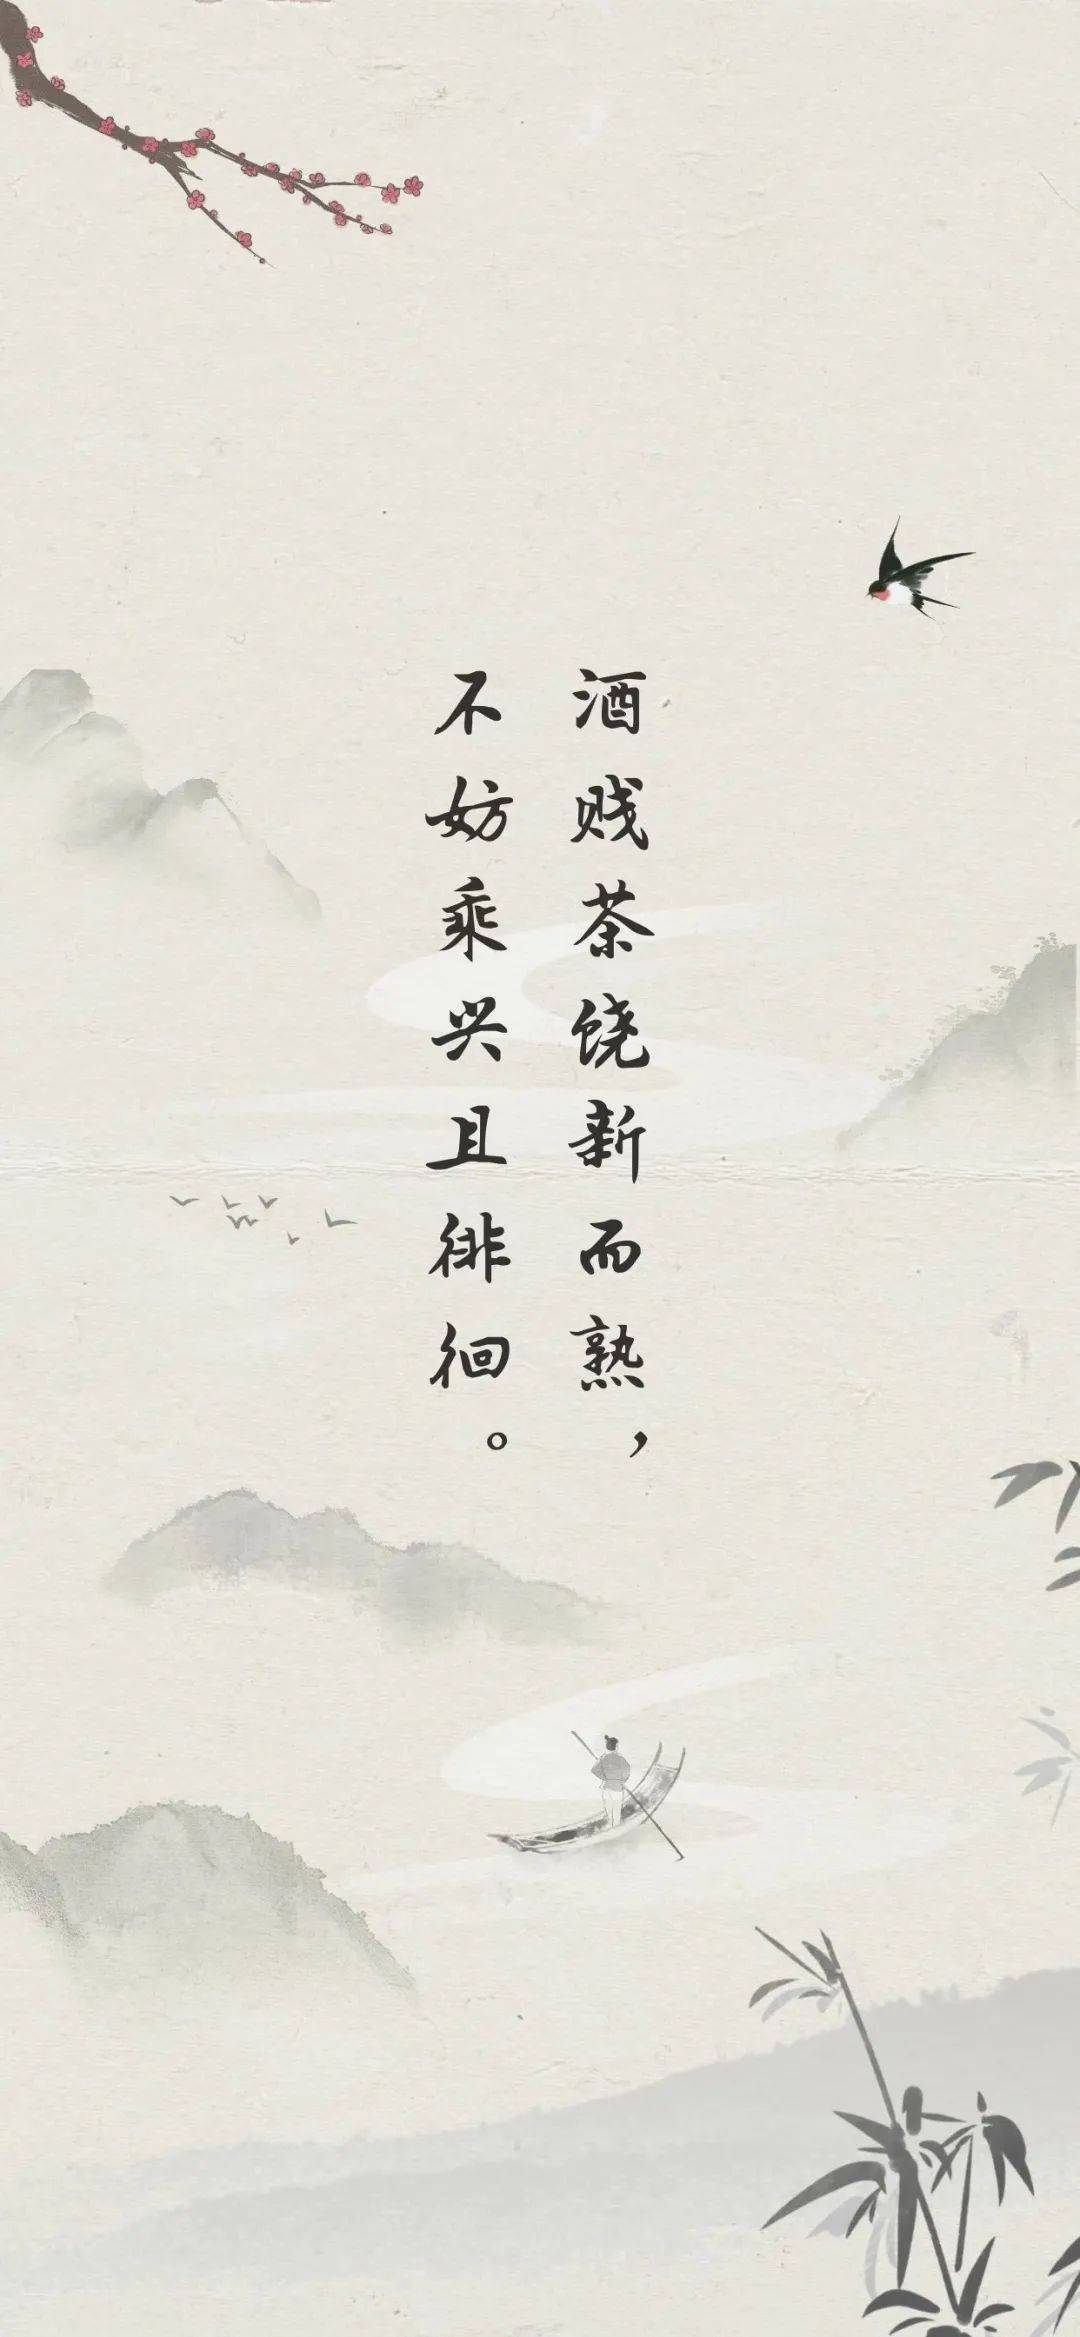 酒贱茶饶新而熟，
不妨乘兴且徘徊。